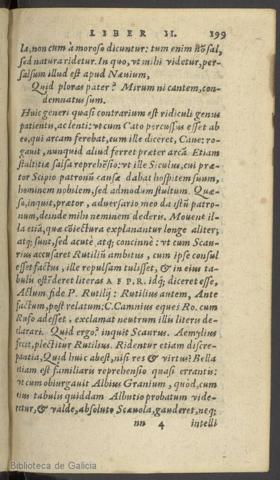 LIBER II. 199
la, non cum à moroso dicuntur: tum enim nō sal,
sed natura ridetur. In quo, vt mihi videtur, per-
salsum illud est apud Næuium,
Quid ploras pater? Mirum ni cantem, con-
demnatus sum.
Huic generi quasi contrarium est ridiculi genus
patientis, ac lenti: vt cum Cato percussus esset ab
eo, qui arcam ferebat, cum ille diceret, Caue: ro-
gauit, nunquid aliud ferret præter arcā. Etiam
stultitiæ salsa reprehēsio: vt ille Siculus, cui præ-
tor Scipio patronū causæ dabat hospitem suum,
hominem nobilem, sed admodum stultum. Quæ-
so, inquit, prætor, aduersario meo da istū patro-
num, deinde mihi neminem dederis. Mouent il-
la etiā, quæ cōiectura explanantur longe aliter;
atq; sunt, sed acutè atq; concinnè: vt cum Scau-
rius accusaret Rutiliū ambitus, cum ipse consul
esset factus, ille repulsam tulisset, & in eius ta-
bulis ostēderet literas A. F. P. R. idq; diceret esse,
Actum fide P. Rutilij: Rutilius autem, Ante
factum, post relatum: C. Camnius eques Ro. cum
Rufo adesset, exclamat neutrum illis literis de-
clarari. Quid ergo? inquit Scaurus. Aemylius
fecit, plectitur Rutilius. Ridentur etiam discre-
pantia, Quid huic abest, nisi res & virtus? Bella
etiam est familiaris reprehensio quasi errantis:
vt cum obiurgauit Albius Granium, quòd, cum
eius tabulis quiddam Albutio probatum vide-
retur, & valde, absoluto Scæuola, gauderet, neq;
nn 4 intelli
Biblioteca de Galicia